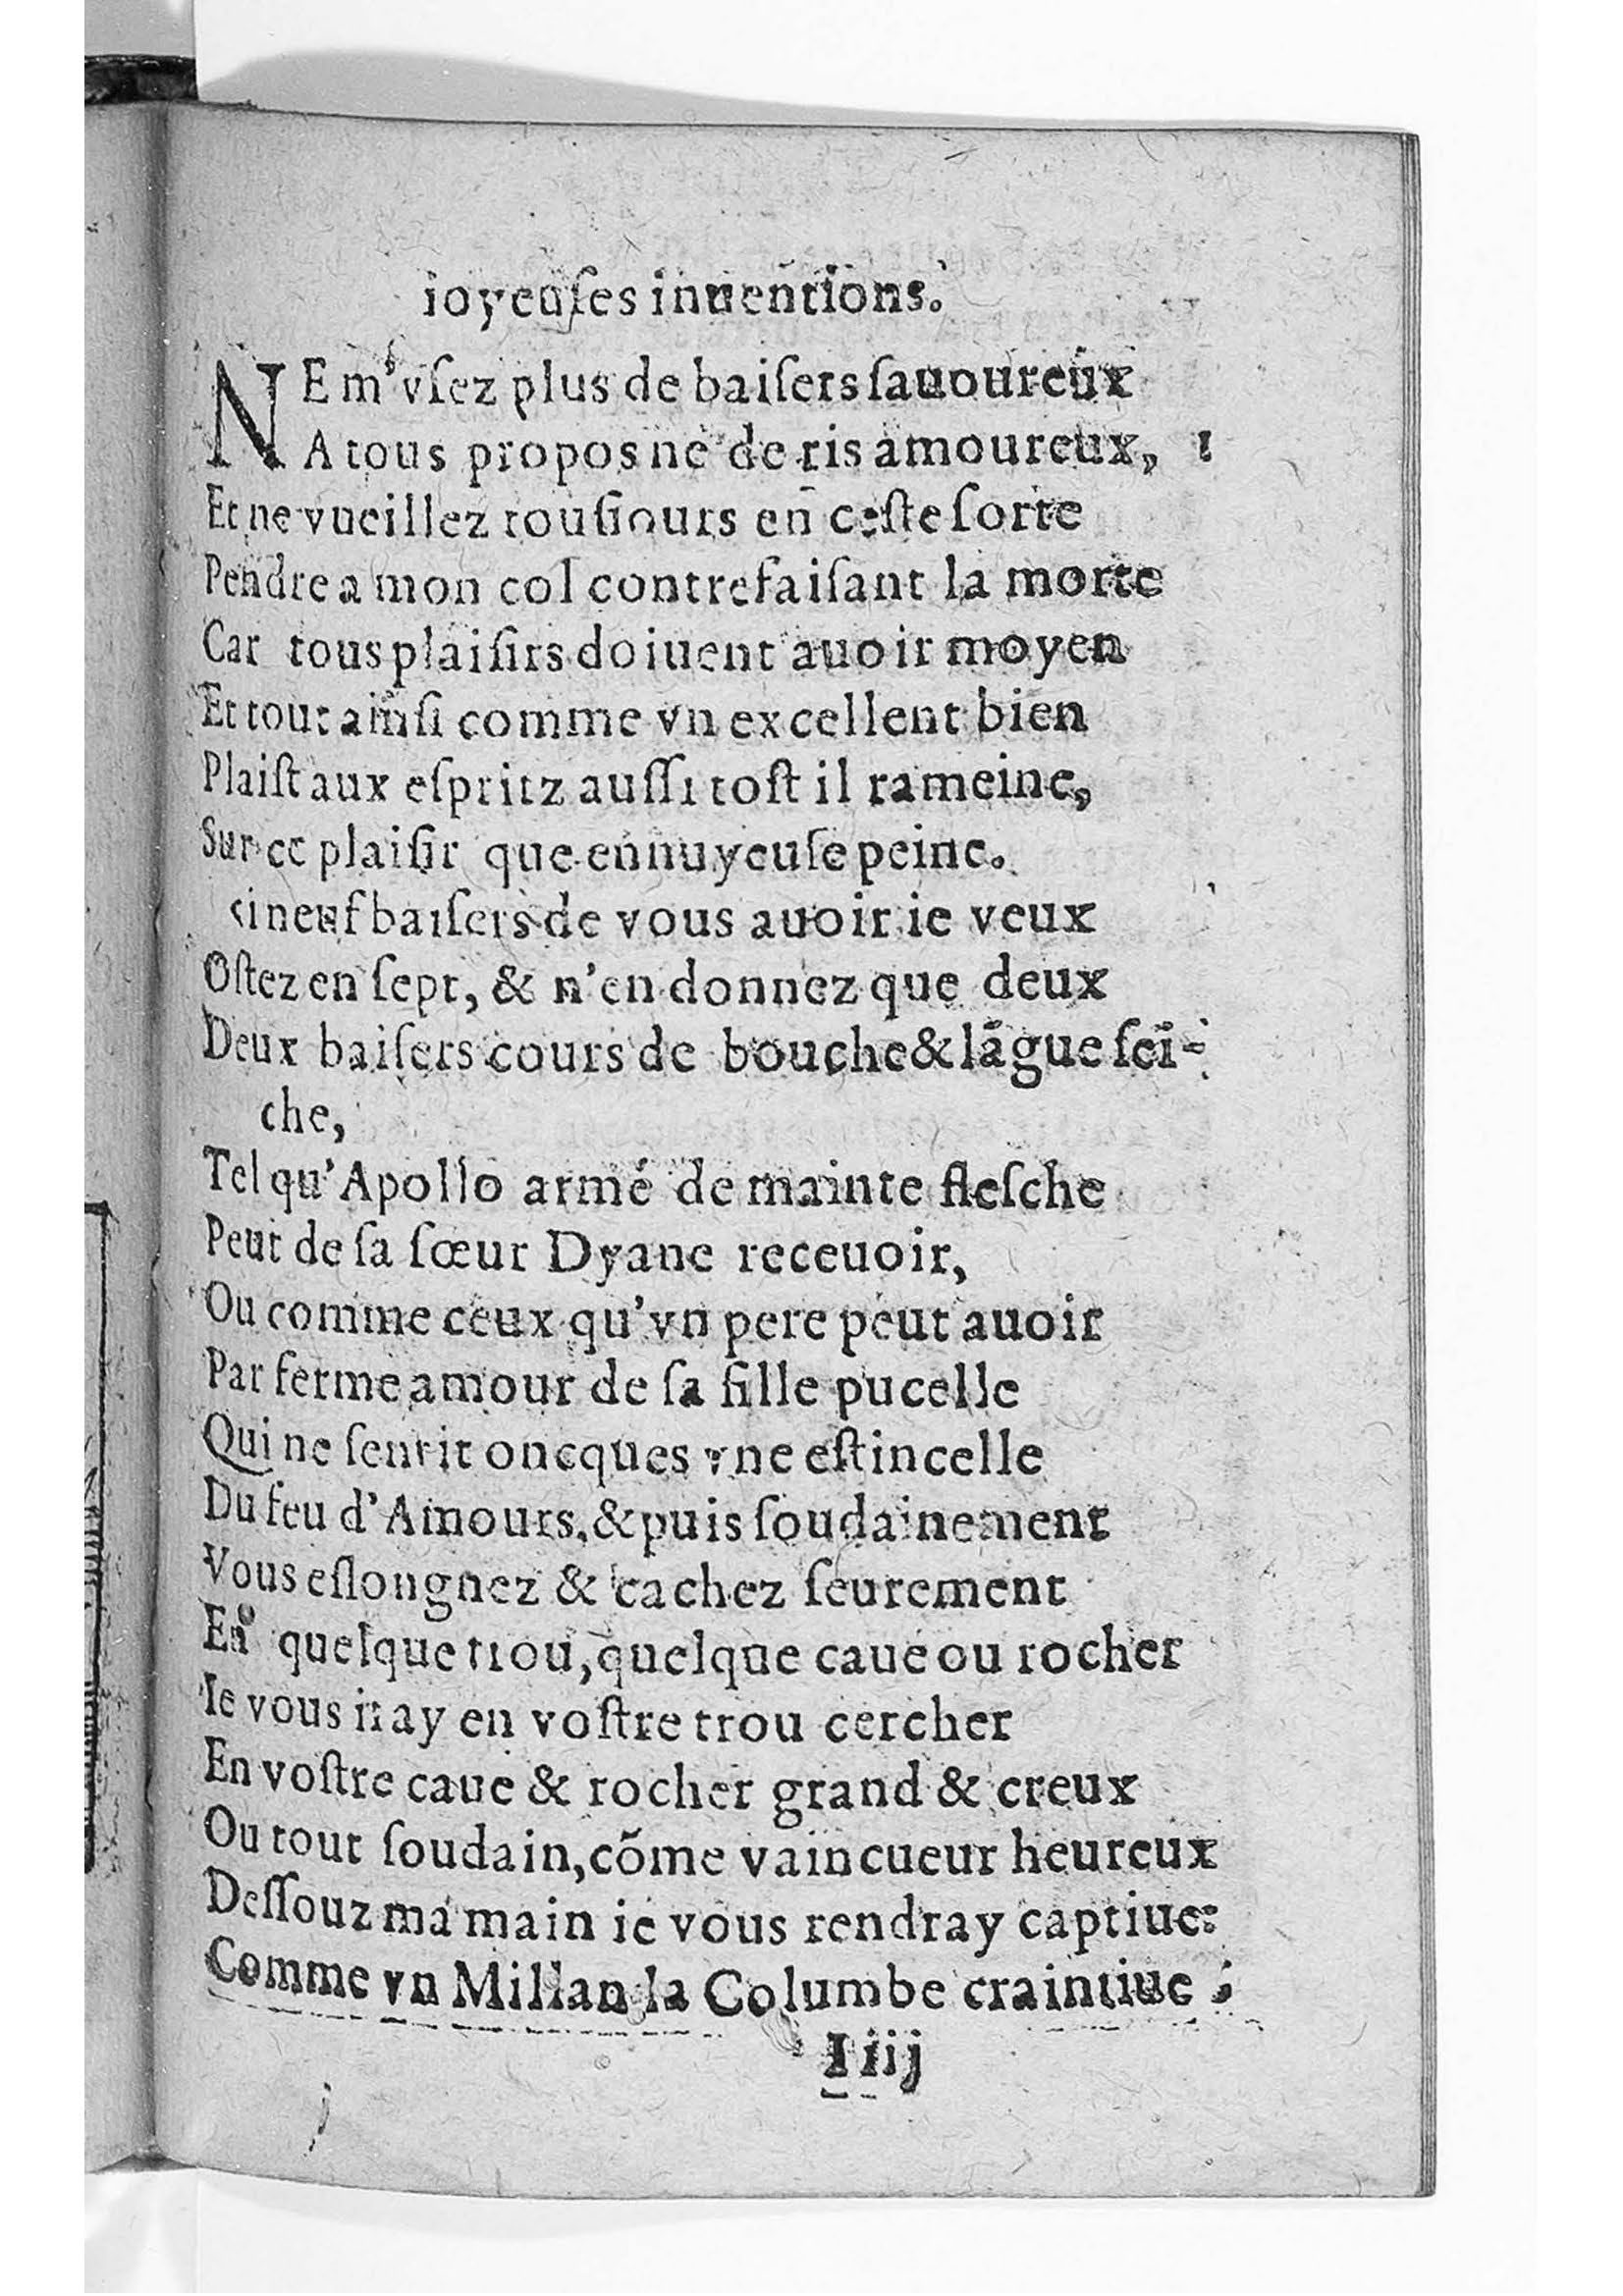 ioyeuſes inuentions.
NE m'vſez plus de baiſers ſauoureux
A tous propos ne de ris amoureux,
Et ne vueillez touſiours en ceſte ſorte
Pendre a mon col contrefaiſant la morte
Car tous plaiſirs doiuent auoir moyen
Et tout ainſi comme vn excellent bien
Plaiſt aux eſpritz auſſi toſt il rameine,
Sur ce plaiſir que ennuyeuſe peine.
Si neuf baiſers de vous auoir ie veux
Oſtez en ſept, & n'en donnez que deux
Deux baiſers cours de bouche & lãgue ſei-
che,
Tel qu'Apollo armé de mainte fleſche
Peut de ſa ſœur Dyane receuoir,
Ou comme ceux qu'vn pere peut auoir
Par ferme amour de ſa fille pucelle
Qui ne ſentit oncques vne eſtincelle
Du feu d'Amours, & puis ſoudainement
Vous eſlongnez & cachez ſeurement
En quelque trou, quelque caue ou rocher
Ie vous iray en voſtre trou cercher
En voſtre caue & rocher grand & creux
Ou tout ſoudain, cõme vaincueur heureux
Deſſouz ma main ie vous rendray captiue:
Comme vn Millan la Columbe craintiue;
I iij